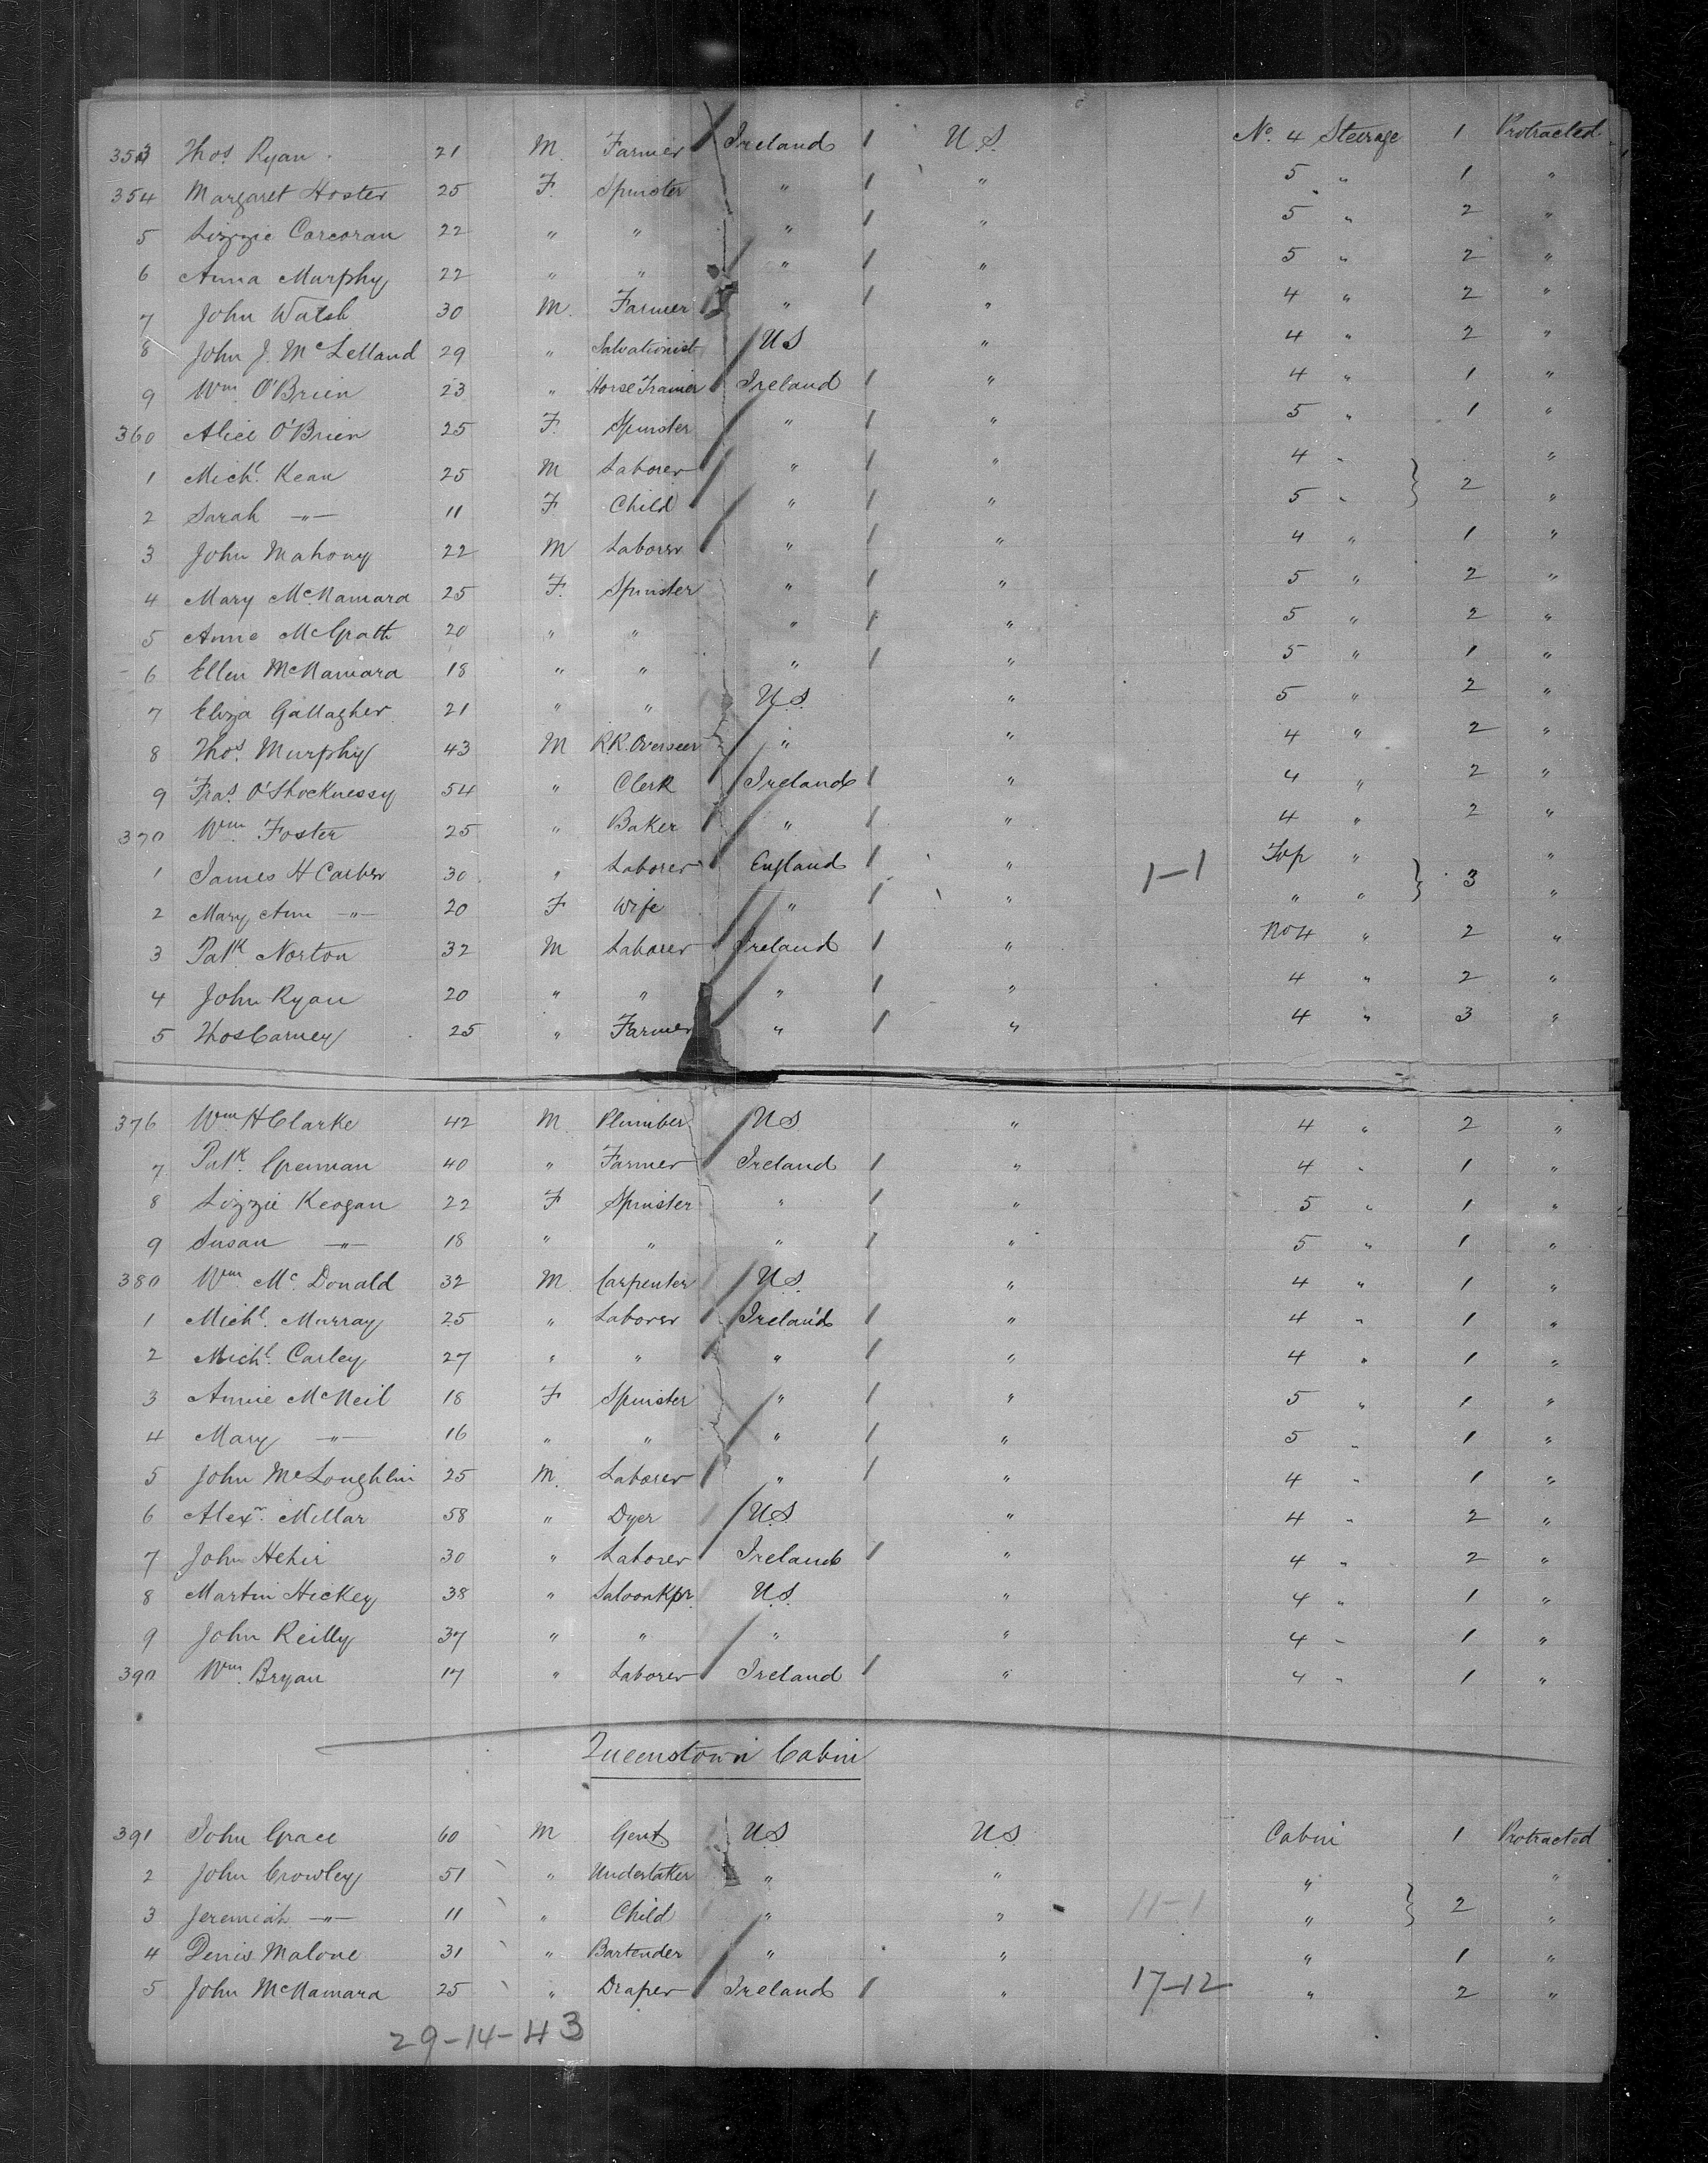 353 Thos Ryan 21 M. Farmer Ireland 1 U.S. No. 4 Steerage 1 Protracted
354 Margaret Hoster 25 F. Spinster " 1 " 5 " 1 "
5 Lizzie Corcoran 22 " " " 1 " 5 " 2 "
6 Anna Murphy 22 " " " 1 " 5 " 2 "
7 John Walsh 30 M. Farmer " 1 " 4 " 2 "
8 John J. McLelland 29 " Salvationist US " 4 " 2 "
9 Wm O'Brien 23 " Horse Trainer Ireland 1 " 4 " 1 "
360 Alice O'Brien 25 F. Spinster " 1 " 5 " 1 "
1 Michl. Kean 25 M Laborer " 1 " 4 " "
2 Sarah —"— 11 F Child " 1 " 5 " } 2 "
3 John Mahony 22 M Laborer " 1 " 4 " 1 "
4 Mary McNamara 25 F. Spinster " 1 " 5 " 2 "
5 Anne McGrath 20 " " " 1 " 5 " 2 "
6 Ellen McNamara 18 " " " 1 " 5 " 1 "
7 Eliza Gallagher 21 " " U.S. " 5 " 2 "
8 Thos. Murphy 43 M R.R. Overseer " " 4 " 2 "
9 Fras. O'Shocknessy 54 " Clerk Ireland 1 " 4 " 2 "
370 Wm Foster 25 " Baker " 1 " 4 " 2 "
1 James H Carter 30 " Laborer England 1 " 1-1 Top " "
2 Mary Ann —"— 20 F Wife " 1 " " " } 3 "
3 Patk Norton 32 M Laborer Ireland 1 " No 4 " 2 "
4 John Ryan 20 " " " 1 " 4 " 2 "
5 Thos Carney 25 " Farmer " 1 " 4 " 3 "
376 Wm H Clarke 42 M Plumber US " 4 " 2 "
7 Patk. Grennan 40 " Farmer Ireland 1 " 4 " 1 "
8 Lizzie Keogan 22 F Spinster " 1 " 5 " 1 "
9 Susan —"— 18 " " " 1 " 5 " 1 "
380 Wm. McDonald 32 M. Carpenter U.S. " 4 " 1 "
1 Michl. Murray 25 " Laborer Ireland 1 " 4 " 1 "
2 Michl. Carley 27 " " " 1 " 4 " 1 "
3 Annie McNeil 18 F Spinster " 1 " 5 " 1 "
4 Mary —"— 16 " " " 1 " 5 " 1 "
5 John McLoughlin 25 M. Laborer " 1 " 4 " 1 "
6 Alexr. Millar 58 " Dyer U.S. " 4 " 2 "
7 John Hehir 30 " Laborer Ireland 1 " 4 " 2 "
8 Martin Hickey 38 " SaloonKpr. U.S. " 4 " 1 "
9 John Reilly 37 " " " " 4 " 1 "
390 Wm. Bryan 17 " Laborer Ireland 1 " 4 " 1 "
Queenstown Cabin
391 John Grace 60 M Gent. US U.S. Cabin 1 Protracted
2 John Crowley 51 " Undertaker " " " "
3 Jeremiah —"— 11 " Child " " 11-1 " } 2 "
4 Denis Malone 31 " Bartender " " " 1 "
5 John McNamara 25 " Draper Ireland 1 " 17-12 " 2 "
29-14-43